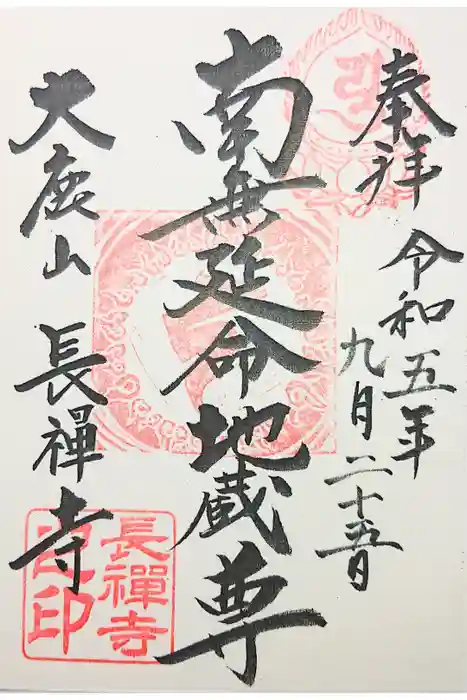 奉拝
令和五年
九月二十五日
南無延命地蔵尊
大鹿山
長禪寺
長禪寺
印